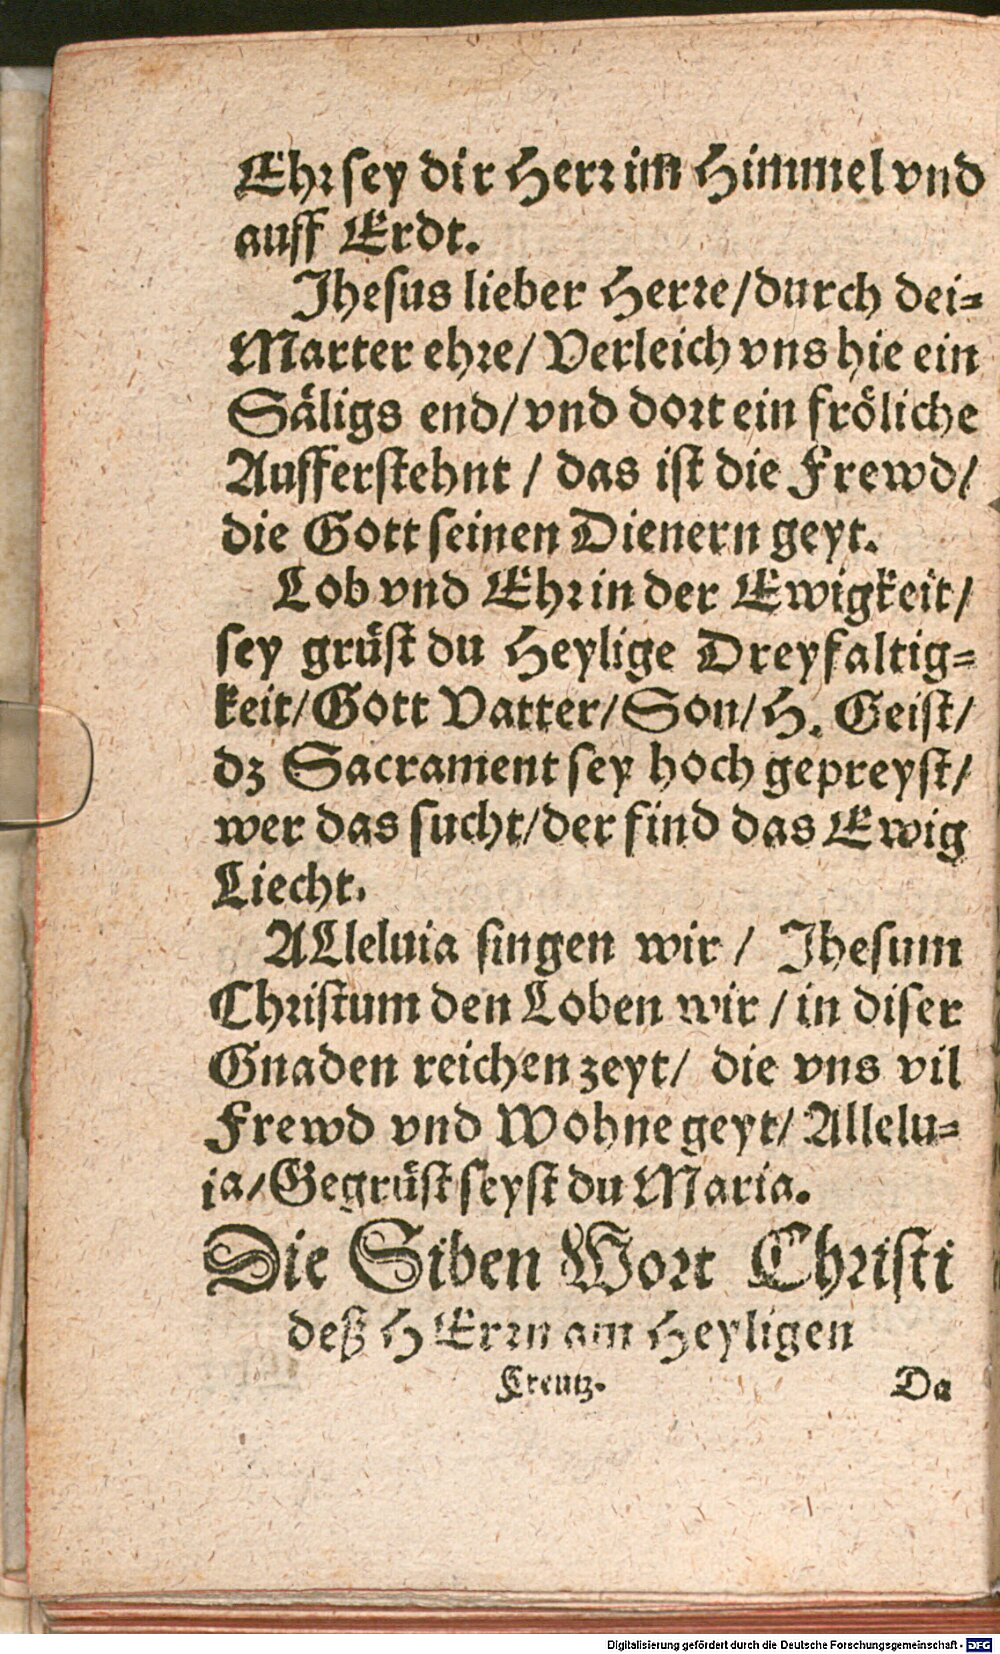 Ehr sey dir Herr im Himmel vnd
auff Erdt.
Jhesus lieber Herre/durch dei-
Marter ehre/ Verleich vns hie ein
Säligs end/ vnd dort ein fröliche
Aufferstehnt / das ist die Frewd/
die Gott seinen Dienern geyt.
Lob vnd Ehr in der Ewigkeit/
sey grüst du Heylige Dreyfaltig-
keit/Gott Vatter/Son/H. Geist/
dz Sacrament sey hoch gepreyst/
wer das sucht/der find das Ewig
Liecht.
ALleluia singen wir / Jhesum
Christum den Loben wir / in diser
Gnaden reichen zeyt/ die vns vil
Frewd vnd Wohne geyt/ Allelu-
ia/Gegrüst seyst du Maria.
Die Siben Wort Christi
deß HErrn am Heyligen
Creutz.
Da
Digitalisierung gefördert durch die Deutsche Forschungsgemeinschaft - DFG